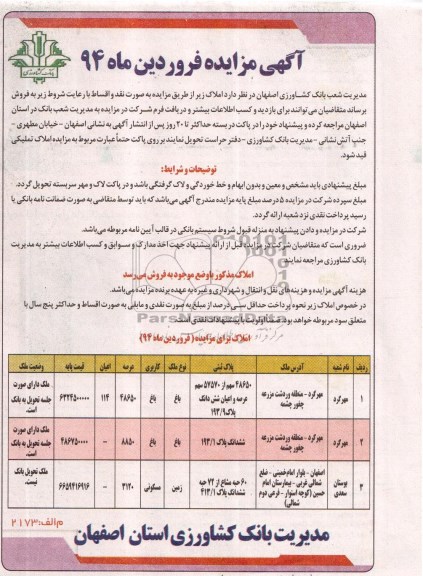 آگهی مزایده فروردین ماه ۹۴
مدیریت شعب بانک کشاورزی اصفهان در نظر دارد املاک زیر از طریق مزایده به صورت نقد و اقساط با رعایت شروط زیر به فروش
برساند متقاضیان می توانند برای بازدید و کسب اطلاعات بیشتر و دریافت فرم شرکت در مزایده به مدیریت شعب بانک در استان
اصفهان مراجعه کرده و پیشنهاد خود را در پاکت در بسته حداکثر تا ۲۰ روز پس از انتشار آگهی به نشانی اصفهان - خیابان مطهری -
جنب آتش نشانی - مدیریت بانک کشاورزی - دفتر حراست تحویل نمایند بر روی پاکت حتماً عبارت مربوط به مزایده املاک تملیکی
قید شود.
توضیحات و شرایط:
مبلغ پیشنهادی باید مشخص و معین و بدون ابهام و خط خوردگی و لاک گرفتگی باشد و در پاکت لاک و مهر سربسته تحویل گردد.
مبلغ سپرده شرکت در مزایده ۵ درصد مبلغ پایه مزایده مندرج آگهی می باشد که باید توسط متقاضی به صورت ضمانت نامه بانکی یا
رسید پرداخت نقدی نزد شعبه ارائه گردد.
شرکت در مزایده و دادن پیشنهاد به منزله قبول شروط سیستم بانکی در قالب آیین نامه مربوطه می باشد.
ضروری است که متقاضیان شرکت در مزایده قبل از ارائه پیشنهاد جهت اخذ مدارک و سوابق و کسب اطلاعات بیشتر به مدیریت
بانک کشاورزی مراجعه نمایند.
املاک مذکور با وضع موجود به فروش می رسد
هزینه آگهی مزایده و هزینه های نقل و انتقال و شهرداری و غیره به عهده برنده مزایده می باشد.
در خصوص املاک زیر نحوه پرداخت حداقل سی درصد از مبلغ به صورت نقدی و مابقی به صورت اقساط و حداکثر پنج سال با
متعلق سود مربوطه خواهد بود. ضمنا اولویت با پیشنهادات نقدی است.
املاک برای مزایده (فروردین ماه ۹۴)
ردیف نام شعبه آدرس ملک پلاک ثبتی نوع ملک کاربری عرصه اعیان قیمت پایه وضعیت ملک
۱ مهرگرد مهرگرد - منطقه وردشت مزرعه چغور چشمه ۴۸۶۵۰ سهم از ۵۷۵۷۰ سهم عرصه و اعیان شش دانگ پلاک ۱۹۳/۹ باغ باغ ۴۸۶۵۰ ۱۱۴ ۶۲۲۴۵۰۰۰۰ ملک دارای صورت جلسه تحویل به بانک است.
۲ مهرگرد مهرگرد - منطقه وردشت مزرعه چغور چشمه ششدانگ پلاک ۱۹۳/۱ باغ باغ ۸۸۵۰ - ۴۸۶۷۵۰۰۰۰ ملک دارای صورت جلسه تحویل به بانک است.
۳ بوستان سعدی اصفهان - بلوار امام خمینی - ضلع شمالی غربی - بیمارستان امام حسین (کوچه استوار - فرعی دوم شمالی) ۶۰ حبه مشاع از ۷۲ حبه ششدانگ پلاک ۴۱۲/۱ زمین مسکونی ۳۱۲۰ - ۶۶۵۹۴۱۶۹۱۶ ملک تحویل بانک نیست.
م الف: ۲۱۷۳
مدیریت بانک کشاورزی استان اصفهان